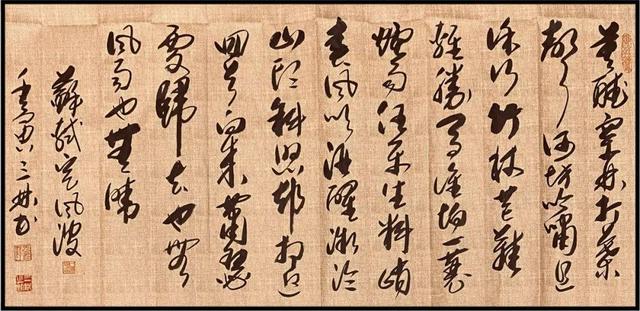 莫聽穿林打葉
聲何妨吟嘯且
徐行竹杖芒鞋
輕勝馬誰怕一蓑
煙雨任平生料峭
春風吹酒醒微冷
山頭斜照却相迎
回首向來蕭瑟
處歸去也無
風雨也無晴
蘇軾定風波
壬寅三林书